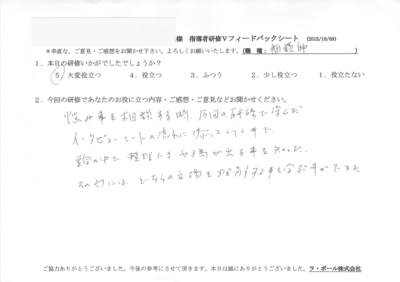 様 指導者研修Ⅴフィードバックシート (2015/10/09)
*率直な、ご意見・ご感想をお聞かせ下さい。よろしくお願いいたします。(職 種:看護師
1.本日の研修いかがでしたでしょうか?
5.大変役立つ 4.役立つ 3.ふつう 2.少し役立つ 1.役立たない
2.今回の研修であなたのお役に立つ内容・ご感想・ご意見などお聞かせください。
悩み事を相談する時、今回の研修で学んだ
インタビューシートの流れに沿って
中で 相談 出る事を知った。
その中には、どちらの立場も
ご協力ありがとうございました。今後の参考にさせて頂きます。本日は誠にありがとうございました。ラ・ポール株式会社